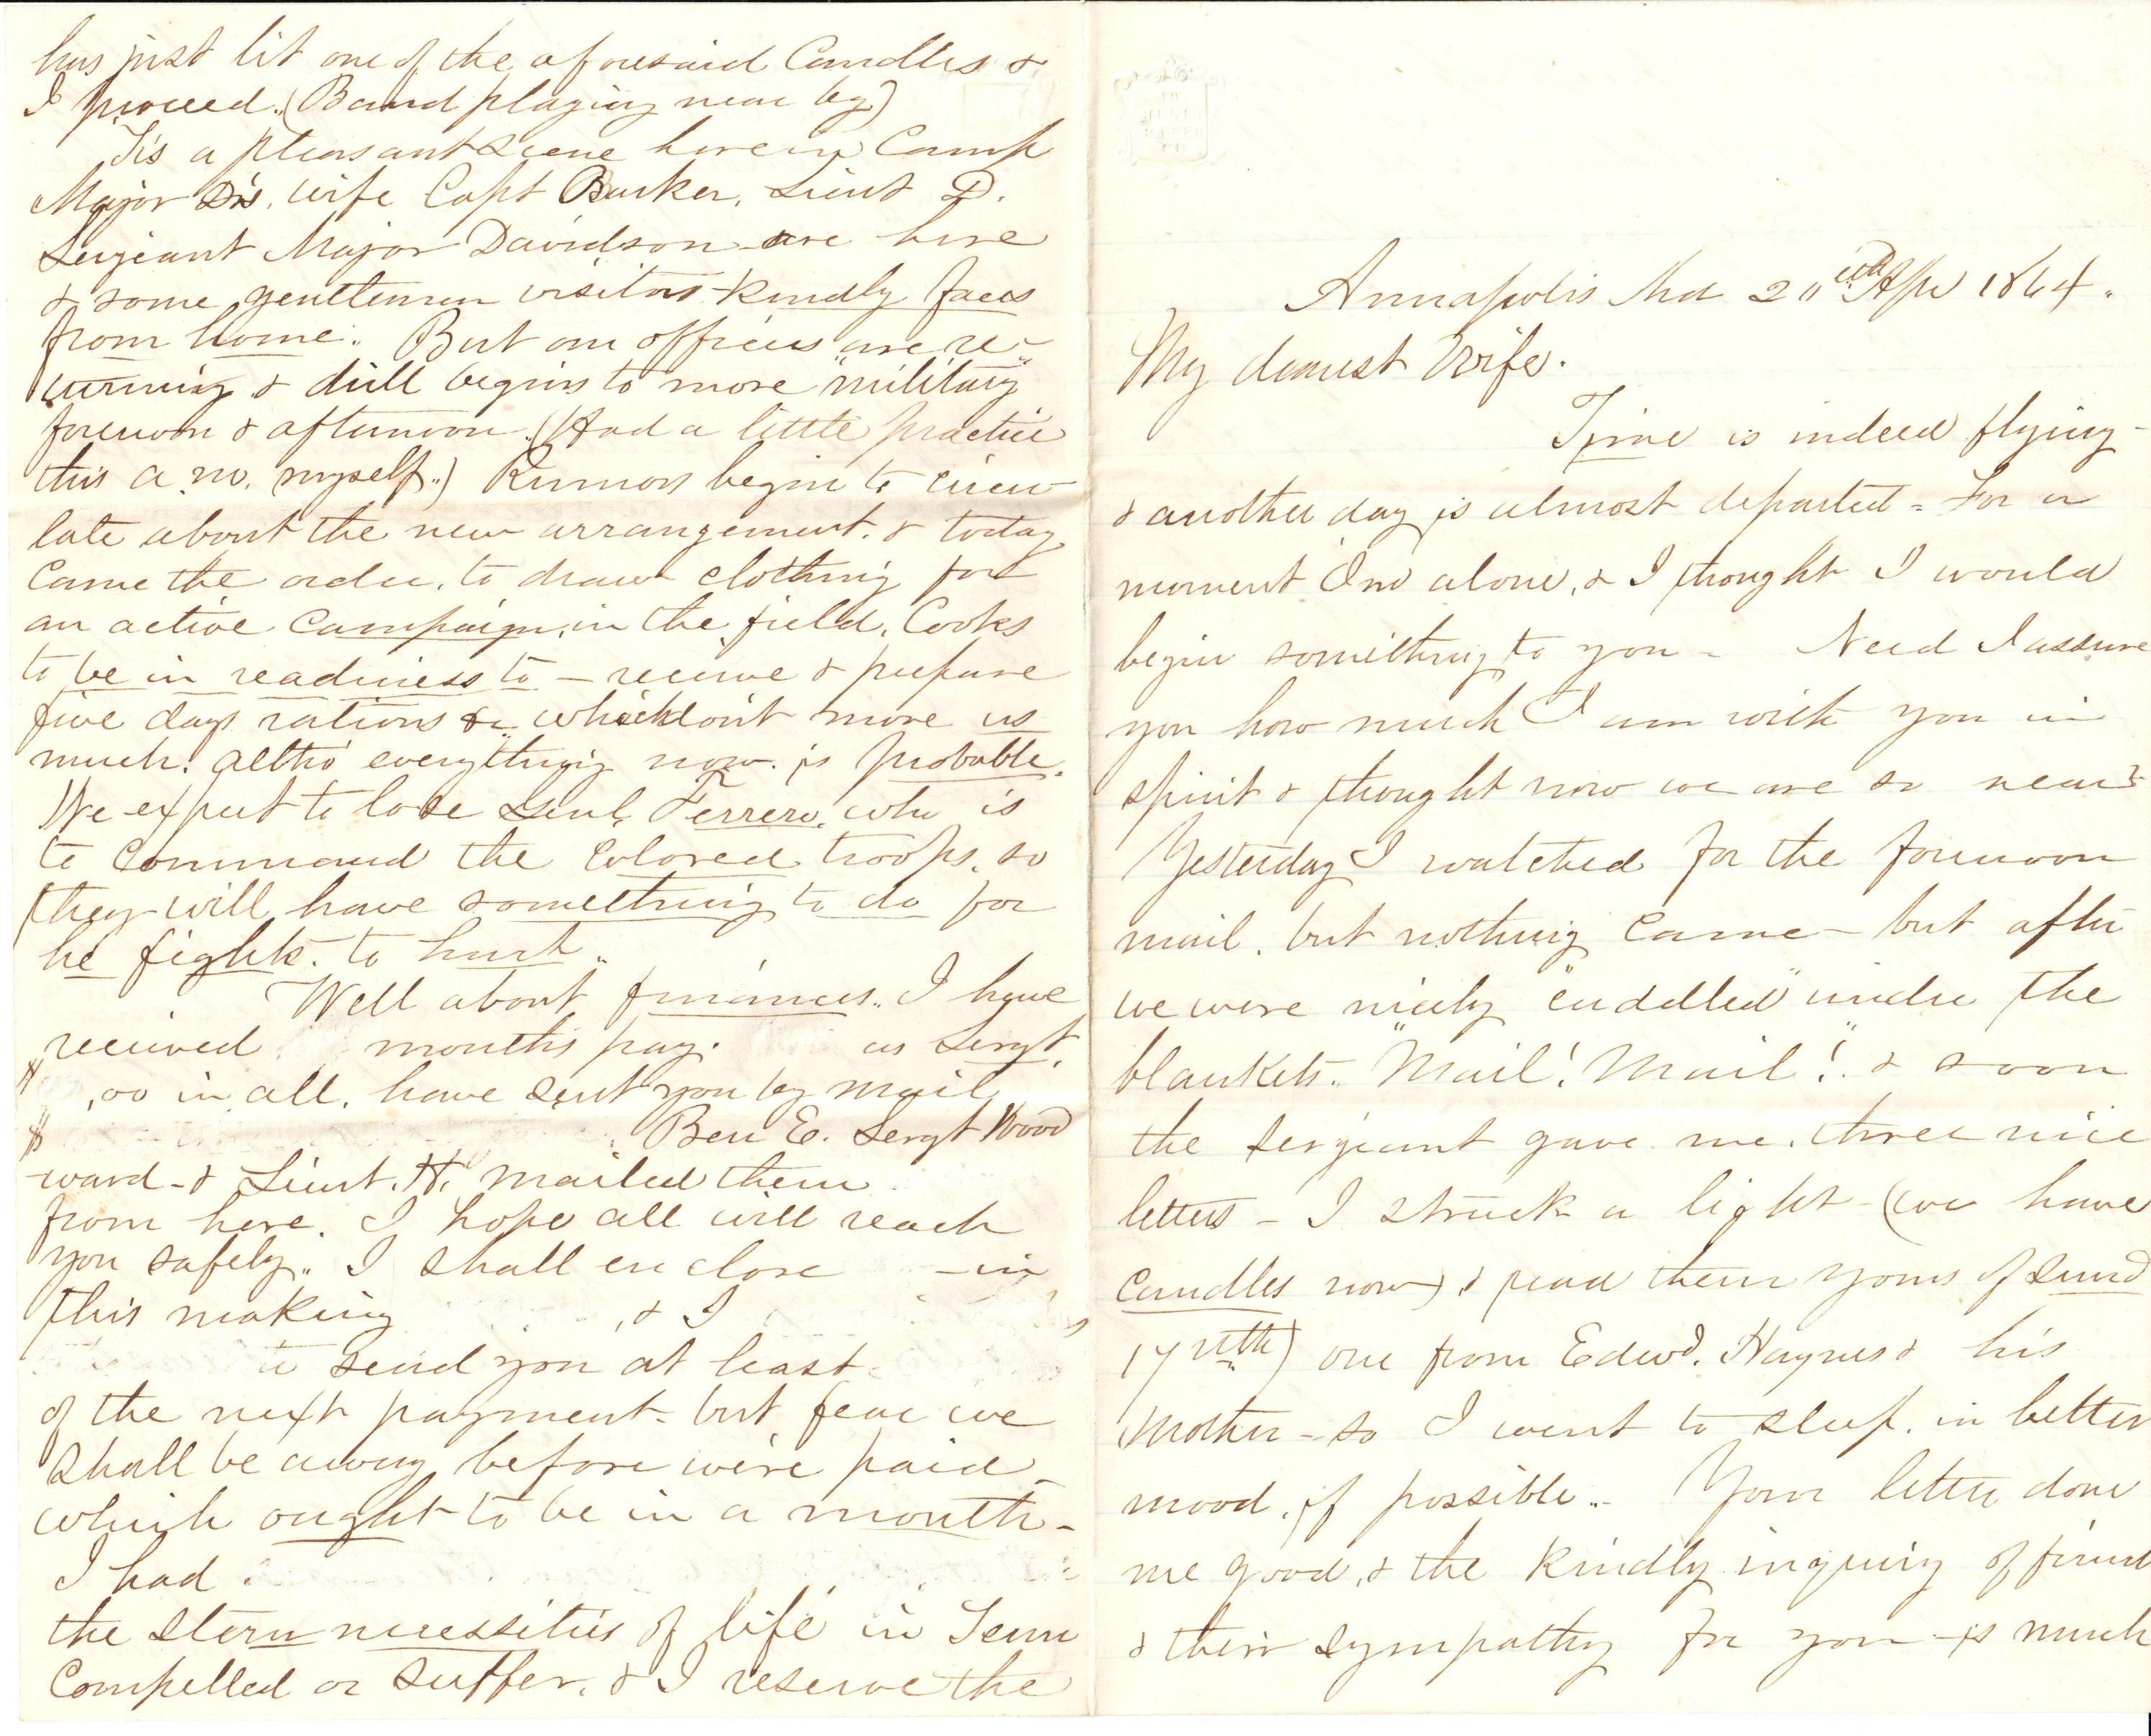 Annapolis Md 20"th Apr 1864.
My dearest Wife.
Time is indeed flying -
& another day is almost departed = For a
moment I'm alone, & I thought I would
begin something to you - Need I assure
you how much I am with you in
spirit & thought now we are so near?
Yesterday I watched for the forenoon
mail, but nothing came - but after
we were nicely "cudelled" under the
blankets.. "Mail! Mail!" & soon
the sergeant gave me. three nice
letters - I struck a light - (we have
candles now) & read them yours of Sund
17"th) one from Edwd. Haynes & his
Mother - so I went to sleep. in better
mood, if possible.. Your letter done
me good, & the kindly inquiry of friend
& their sympathy for you - is much
has just lit one of the aforesaid Candles &
I proceed. (Band playing near by)
Tis a pleasant scene here in Camp
Major D's. wife Capt Barker. Lieut D.
Sergeant Major Davidson are here
& some gentlemen visitors - kindly faces
from home. But our officers are re-
turning & drill begins to more "military"
forenoon & afternoon. (Had a little practice
this a.m. myself.) Rumors begin to circu
late about the new arrangement. & today
Came the order, to draw clothing for
an active campaign, in the field. Cooks
to be in readiness to - receive & prepare
five days rations &c which don't move us
much. altho' everything now. is probable.
We expect to lose Genl. Ferrero. who is
to command the colored troops, so
they will have something to do for
he fights. to hurt..
Well about finances.. I have
received months pay. as Sergt.
$ .00 in all. have sent you by mail
$ Ben E. Sergt Wood
-ward - & Lieut. H. mailed them
from here. I hope all will reach
you safely.. I shall enclose - in
this making , & I
to send you at least
of the next payment - but fear we
shall be away before we're paid -
which ought to be in a month -
I had .
the stern necessities of life in Tenn
Compelled or suffer, & I reserve the